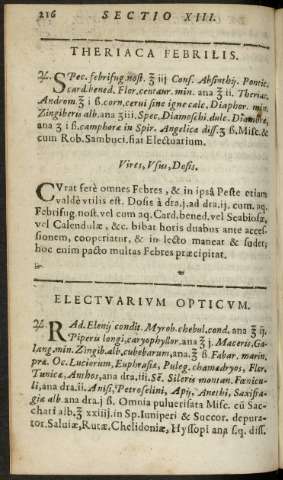 216 SECTIO XIII.
THERIACA FEBRILIS.
℞. SPec. febrifug. nost. ℥ iij Conf. Absinthij. Pontic.
card. bened. Flor. centaur. min. ana ℥ ii. Theriac.
Androm. ʒ i ß. corn. cerui sine igne calc. Diaphor. min.
Zingiberis alb. ana ʒ iii. Spec. Diamoschi. dulc.
ana ʒ i ß. camphoræ in Spir. Angelicæ diss. ʒ ß. Misc. &
cum Rob. Sambuci. fiat Electuarium.
Vires, Vsus, Dosis.
CVrat ferè omnes Febres, & in ipsâ Peste etiam
valdè vtilis est. Dosis à dra. j. ad dra. ij. cum. aq.
Febrifug. nost. vel cum aq. Card. bened. vel Scabiosæ,
vel Calendulæ, &c. bibat horis duabus ante acces-
sionem, cooperiatur, & in lecto maneat & sudet;
hoc enim pacto multas Febres præcipitat.
ELECTVARIVM OPTICVM.
℞. RAd. Elenij condit. Myrob. chebul. cond. ana ℥ ij.
Piperis longi, caryophyllor. ana ʒ j. Maceris, Ga-
lang. min. Zingib. alb. cubebarum, ana. ʒ ß. Fabar. marin.
præ. Oc. Luciorum, Euphrasiæ, Puleg. chamædryos, Flor.
Tunicæ, Anthos, ana dra. iii. Sē. Sileris montan. Fœnicu-
li, ana dra. ii. Anisi, Petroselini, Apij, Anethi, Saxifra-
giæ alb. ana dra. j ß. Omnia puluerisata Misc. cū Sac-
chari alb. ℥ xxiiij. in Sp. Iuniperi & Succor. depura-
tor. Saluiæ, Rutæ, Chelidoniæ, Hyssopi ana s. q. diss.